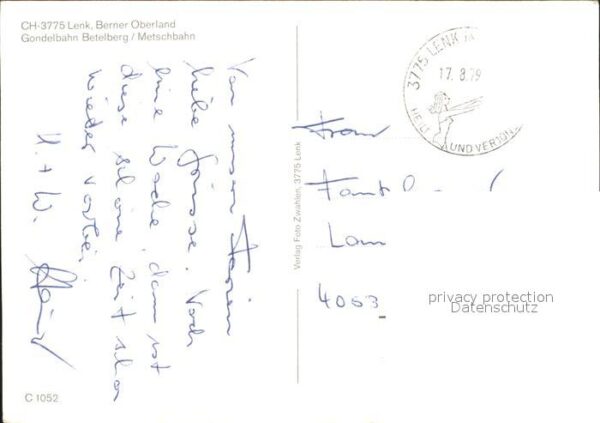 CH-3775 Lenk, Berner Oberland
Gondelbahn Betelberg / Metschbahn
Von unseren Ferien
liebe Grüsse. Noch
eine Woche, dann ist
diese schöne Zeit schon
wieder vorbei.
H. + W.
C 1052
Verlag Foto Zwahlen, 3775 Lenk
3775 LENK
17. 8. 79
HEILT UND VERJÜN
Frau
4063
privacy protection
Datenschutz